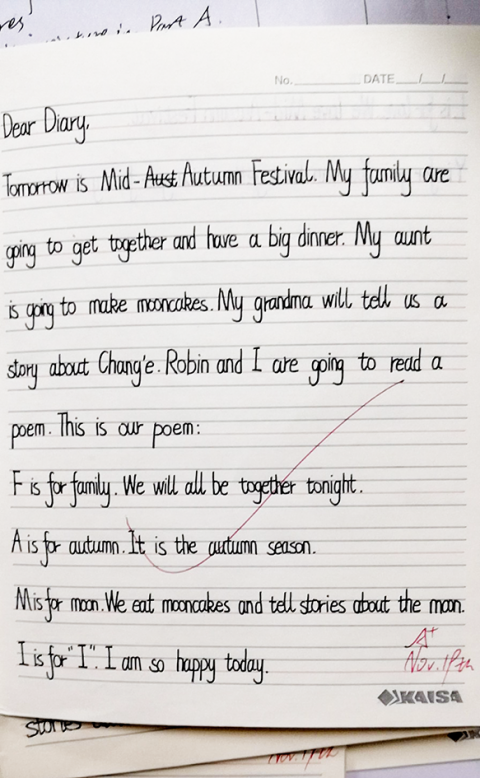 res!
in Part A.
No. DATE / /
Dear Diary,
Tomorrow is Mid-Aust Autumn Festival. My family are
going to get together and have a big dinner. My aunt
is going to make mooncakes. My grandma will tell us a
story about Chang'e. Robin and I are going to read a
poem. This is our poem:
F is for family. We will all be together tonight.
A is for autumn. It is the autumn season.
M is for moon. We eat mooncakes and tell stories about the moon.
I is for "I". I am so happy today.
A+
Nov. 19th
KAISA
stories
Nov. 19th